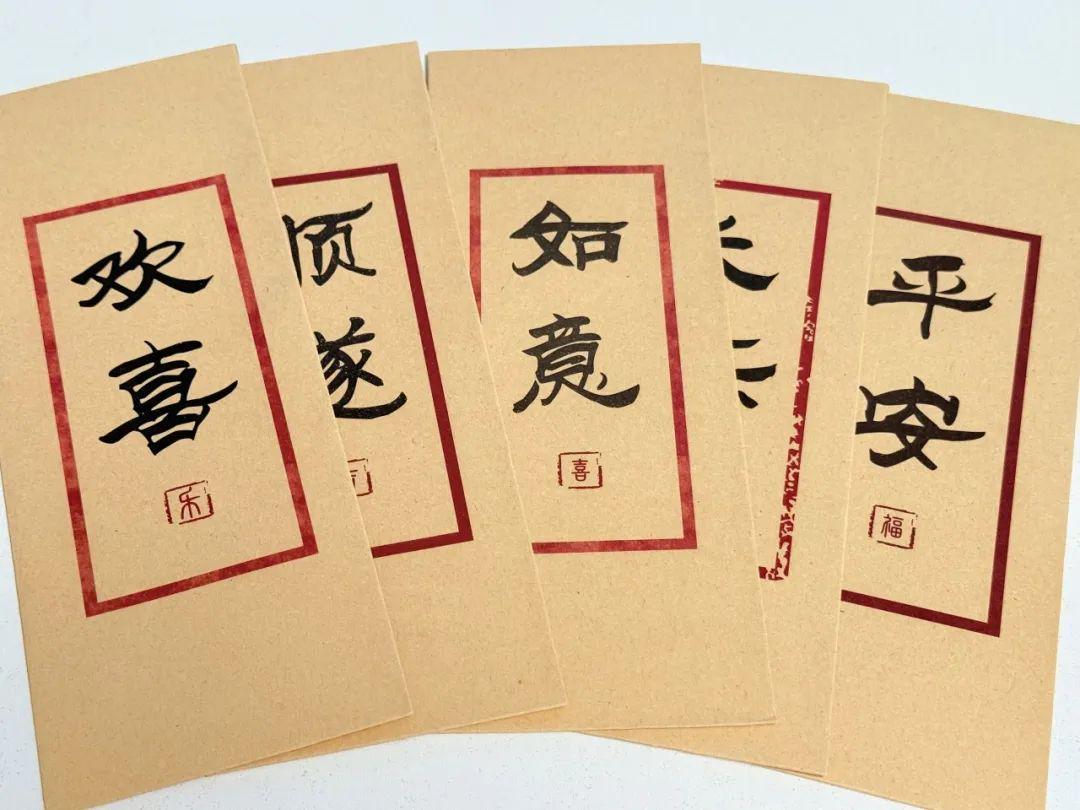 欢
喜
乐
顺
遂
如
意
喜
平
安
福